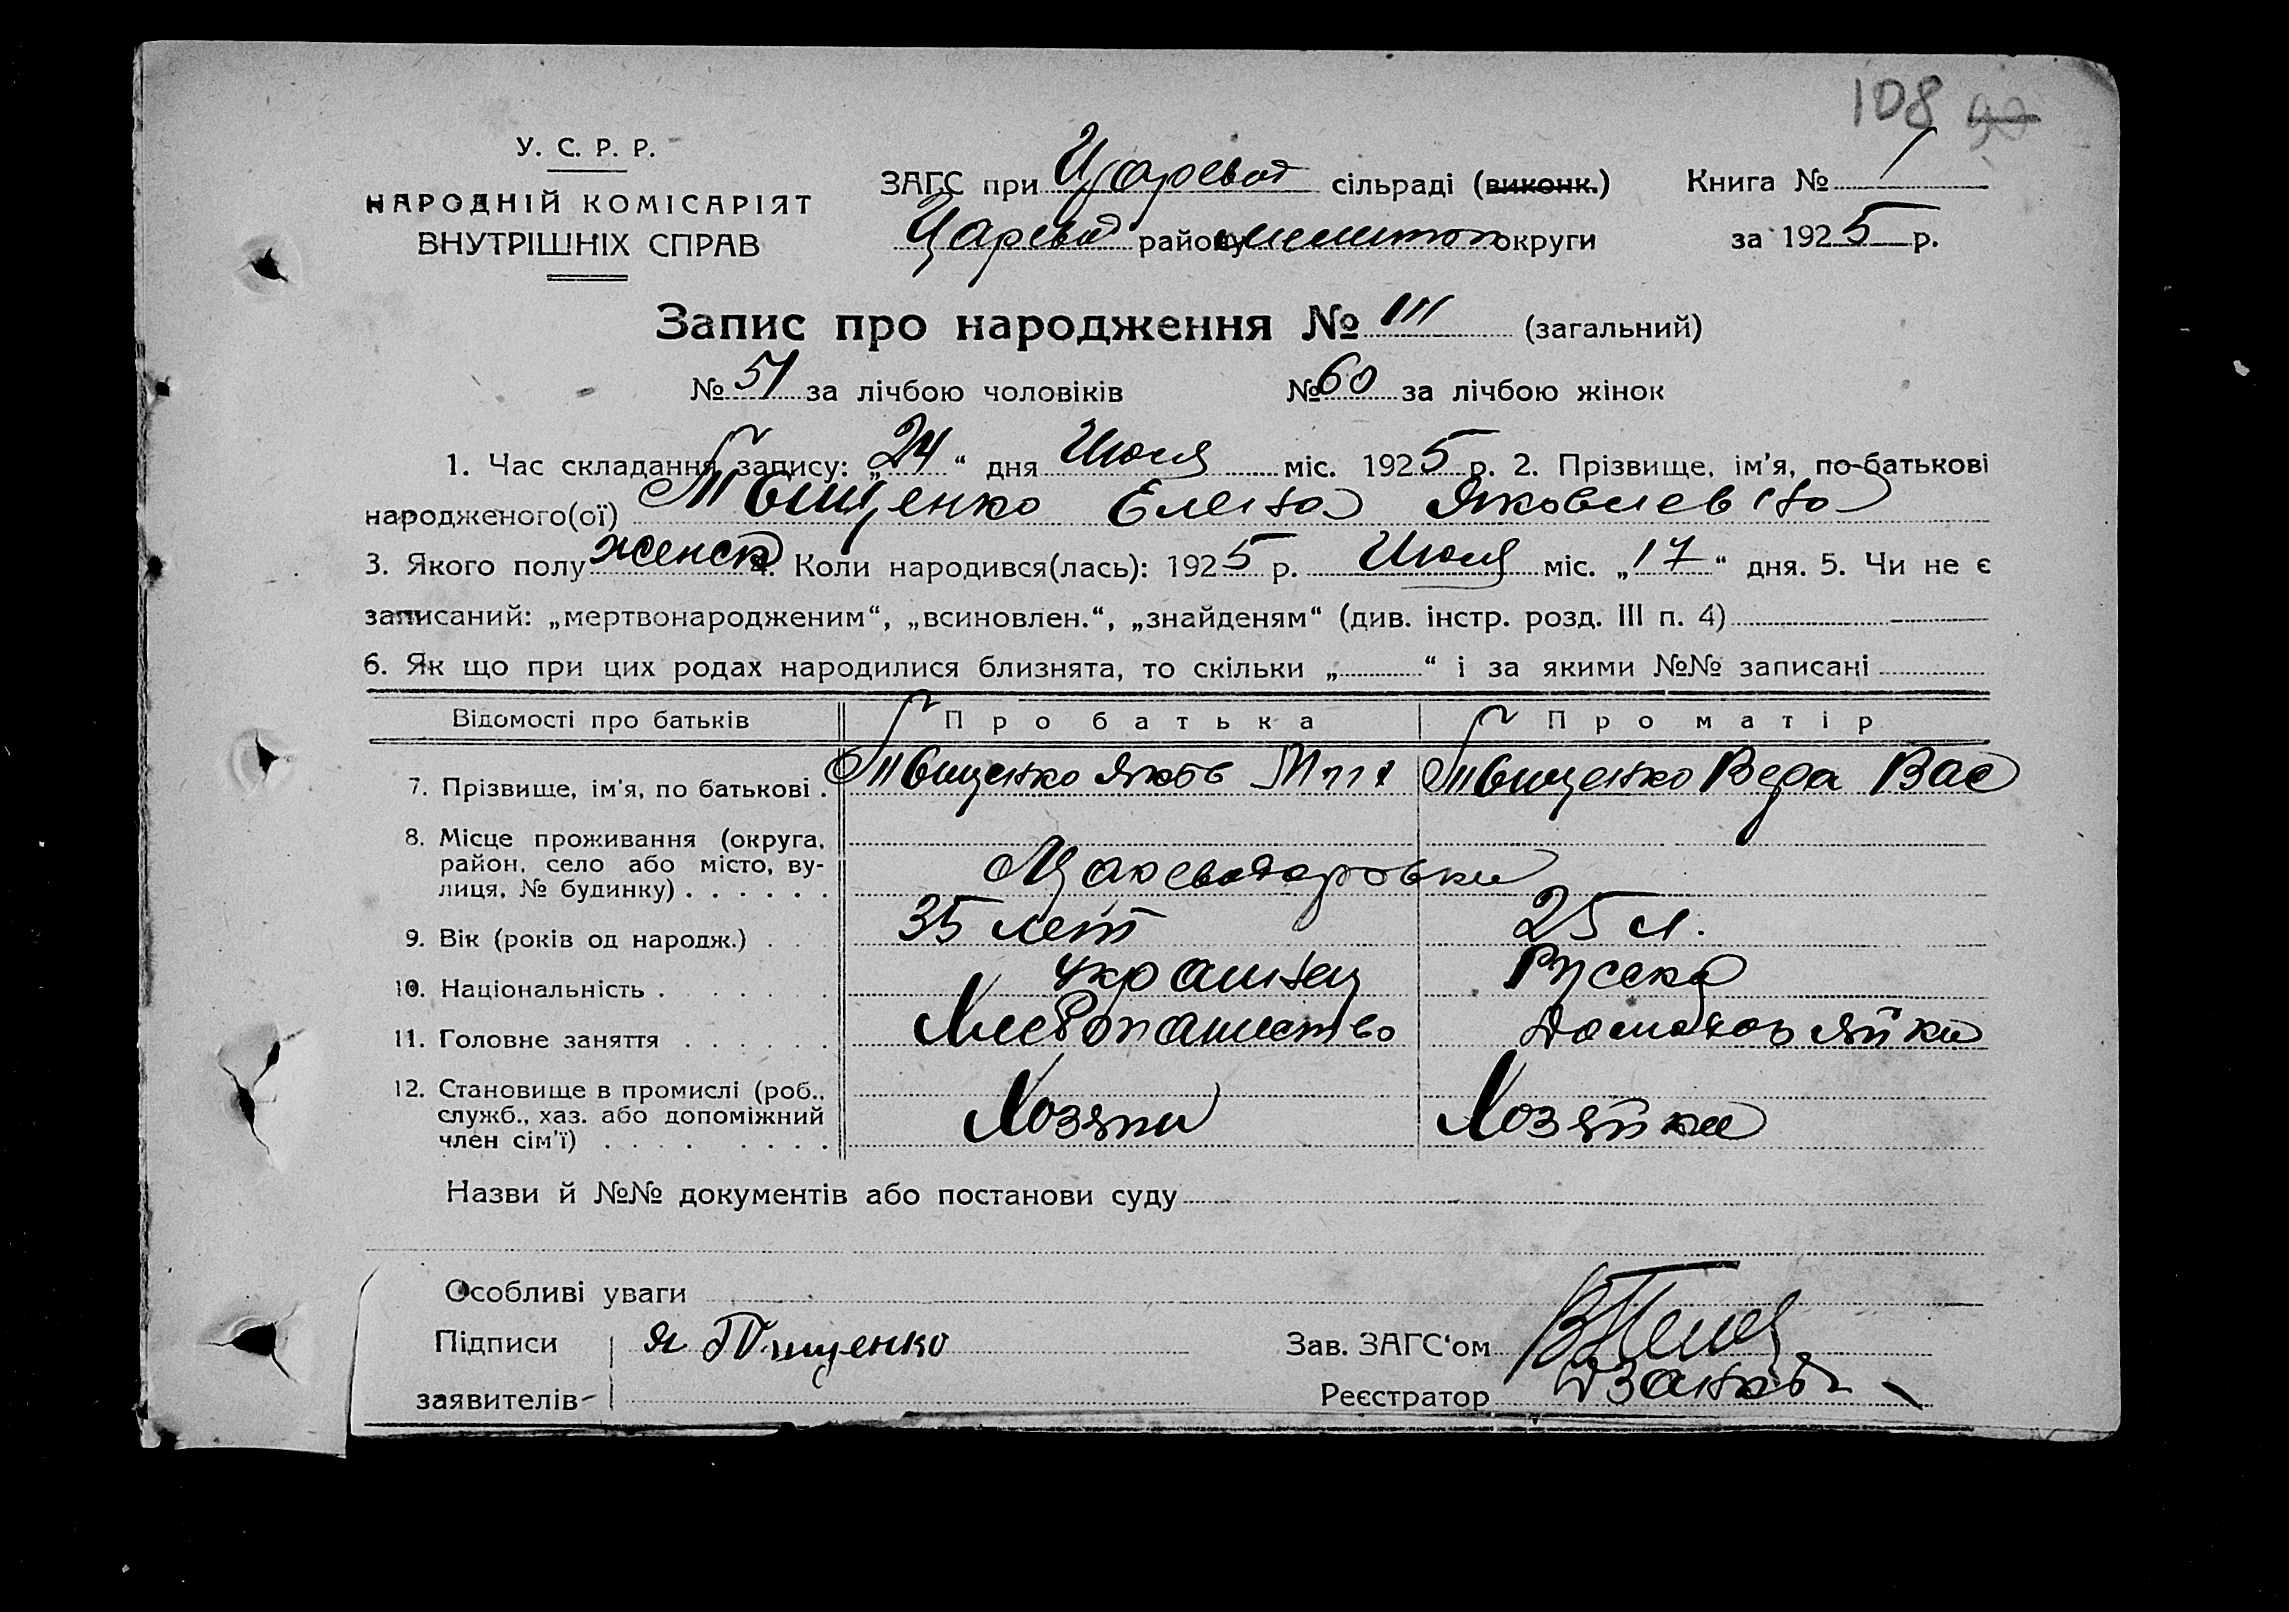 108 90
У. С. Р. Р.
НАРОДНІЙ КОМІСАРІЯТ
ВНУТРІШНІХ СПРАВ
ЗАГС при Царевод сільраді (виконк.) Книга № 1
Царевод району мелитоп округи за 1925 р.
Запис про народження № 111 (загальний)
№ 51 за лічбою чоловіків № 60 за лічбою жінок
1. Час складання запису: „24“ дня Июля міс. 1925 р. 2. Прізвище, ім'я, по-батькові
народженого(ої) Тищенко Елена Яковлевна
3. Якого полу женск 4. Коли народився(лась): 1925 р. Июля міс. „17“ дня. 5. Чи не є
записаний: „мертвонародженим“, „всиновлен.“, „знайденям“ (див. інстр. розд. III п. 4)
6. Як що при цих родах народилися близнята, то скільки „ “ і за якими №№ записані
Відомості про батьків Про батька Про матір
7. Прізвище, ім'я, по батькові . Яков Вера Вас
8. Місце проживання (округа,
район, село або місто, ву-
лиця, № будинку) . . . . . .
9. Вік (років од народж.) . . . 35 лет 25 л.
10. Національність . . . . . . украинец Руска
11. Головне заняття . . . . . . Хлебопашество Домохозяйка
12. Становище в промислі (роб.,
служб., хаз. або допоміжний
член сім'ї) . . . . . . . Хозяин Хозяйка
Назви й №№ документів або постанови суду
Особливі уваги
Підписи Я Тищенко Зав. ЗАГС'ом
заявителів Реєстратор